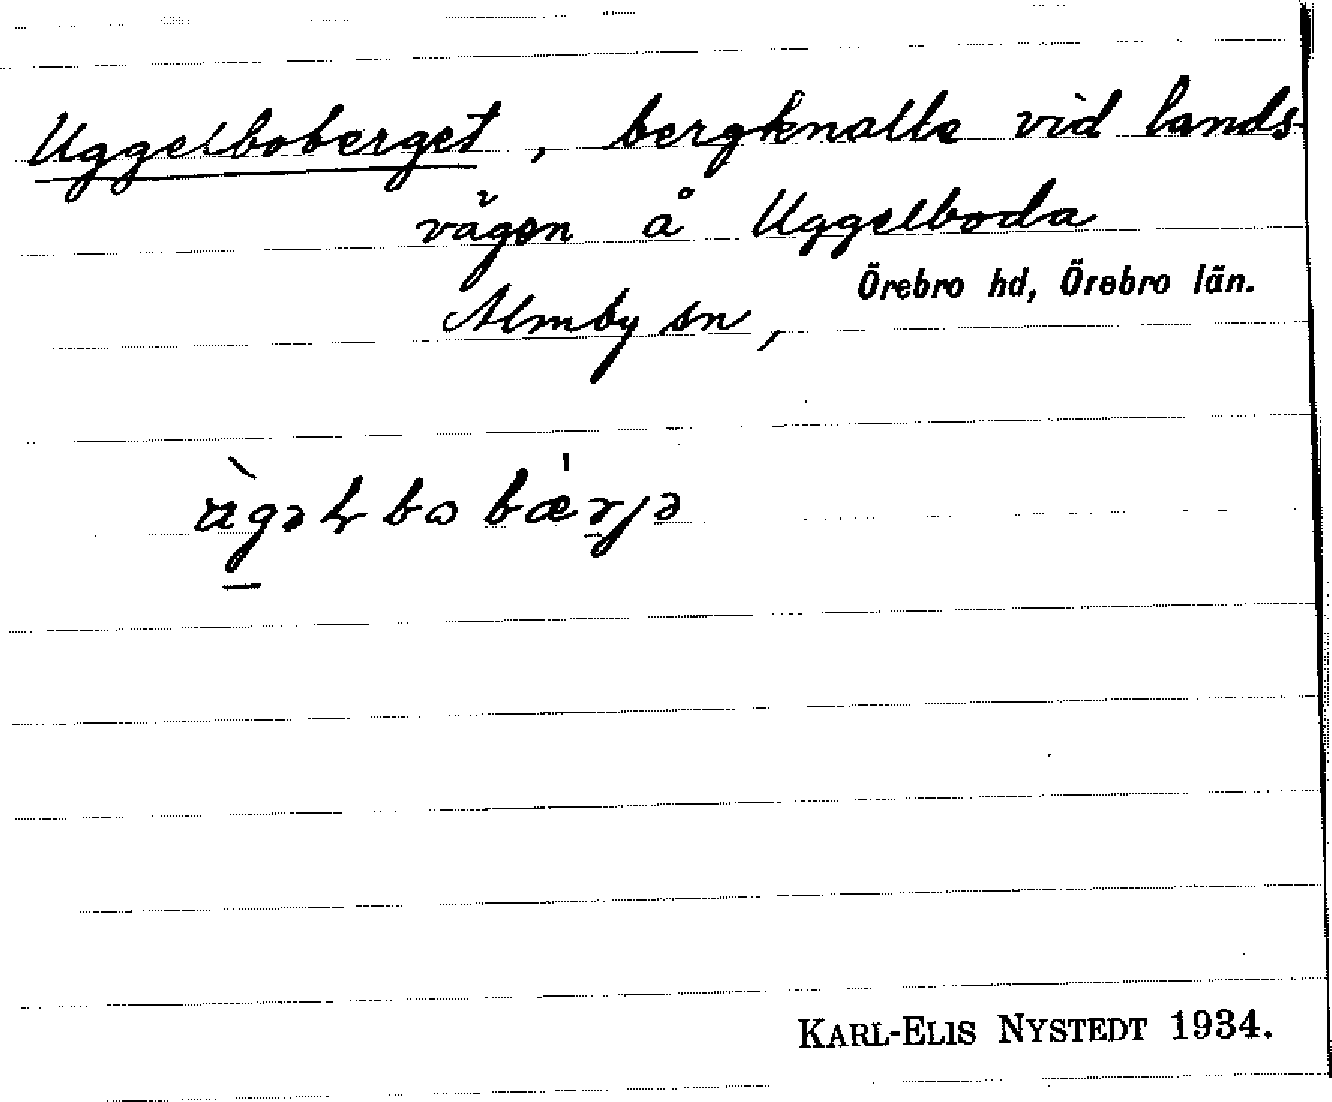 Uggelboberget, bergknalle vid lands-
vägen å Uggelboda
Örebro hd, Örebro län.
Almby sn,
KARL-ELIS NYSTEDT 1934.